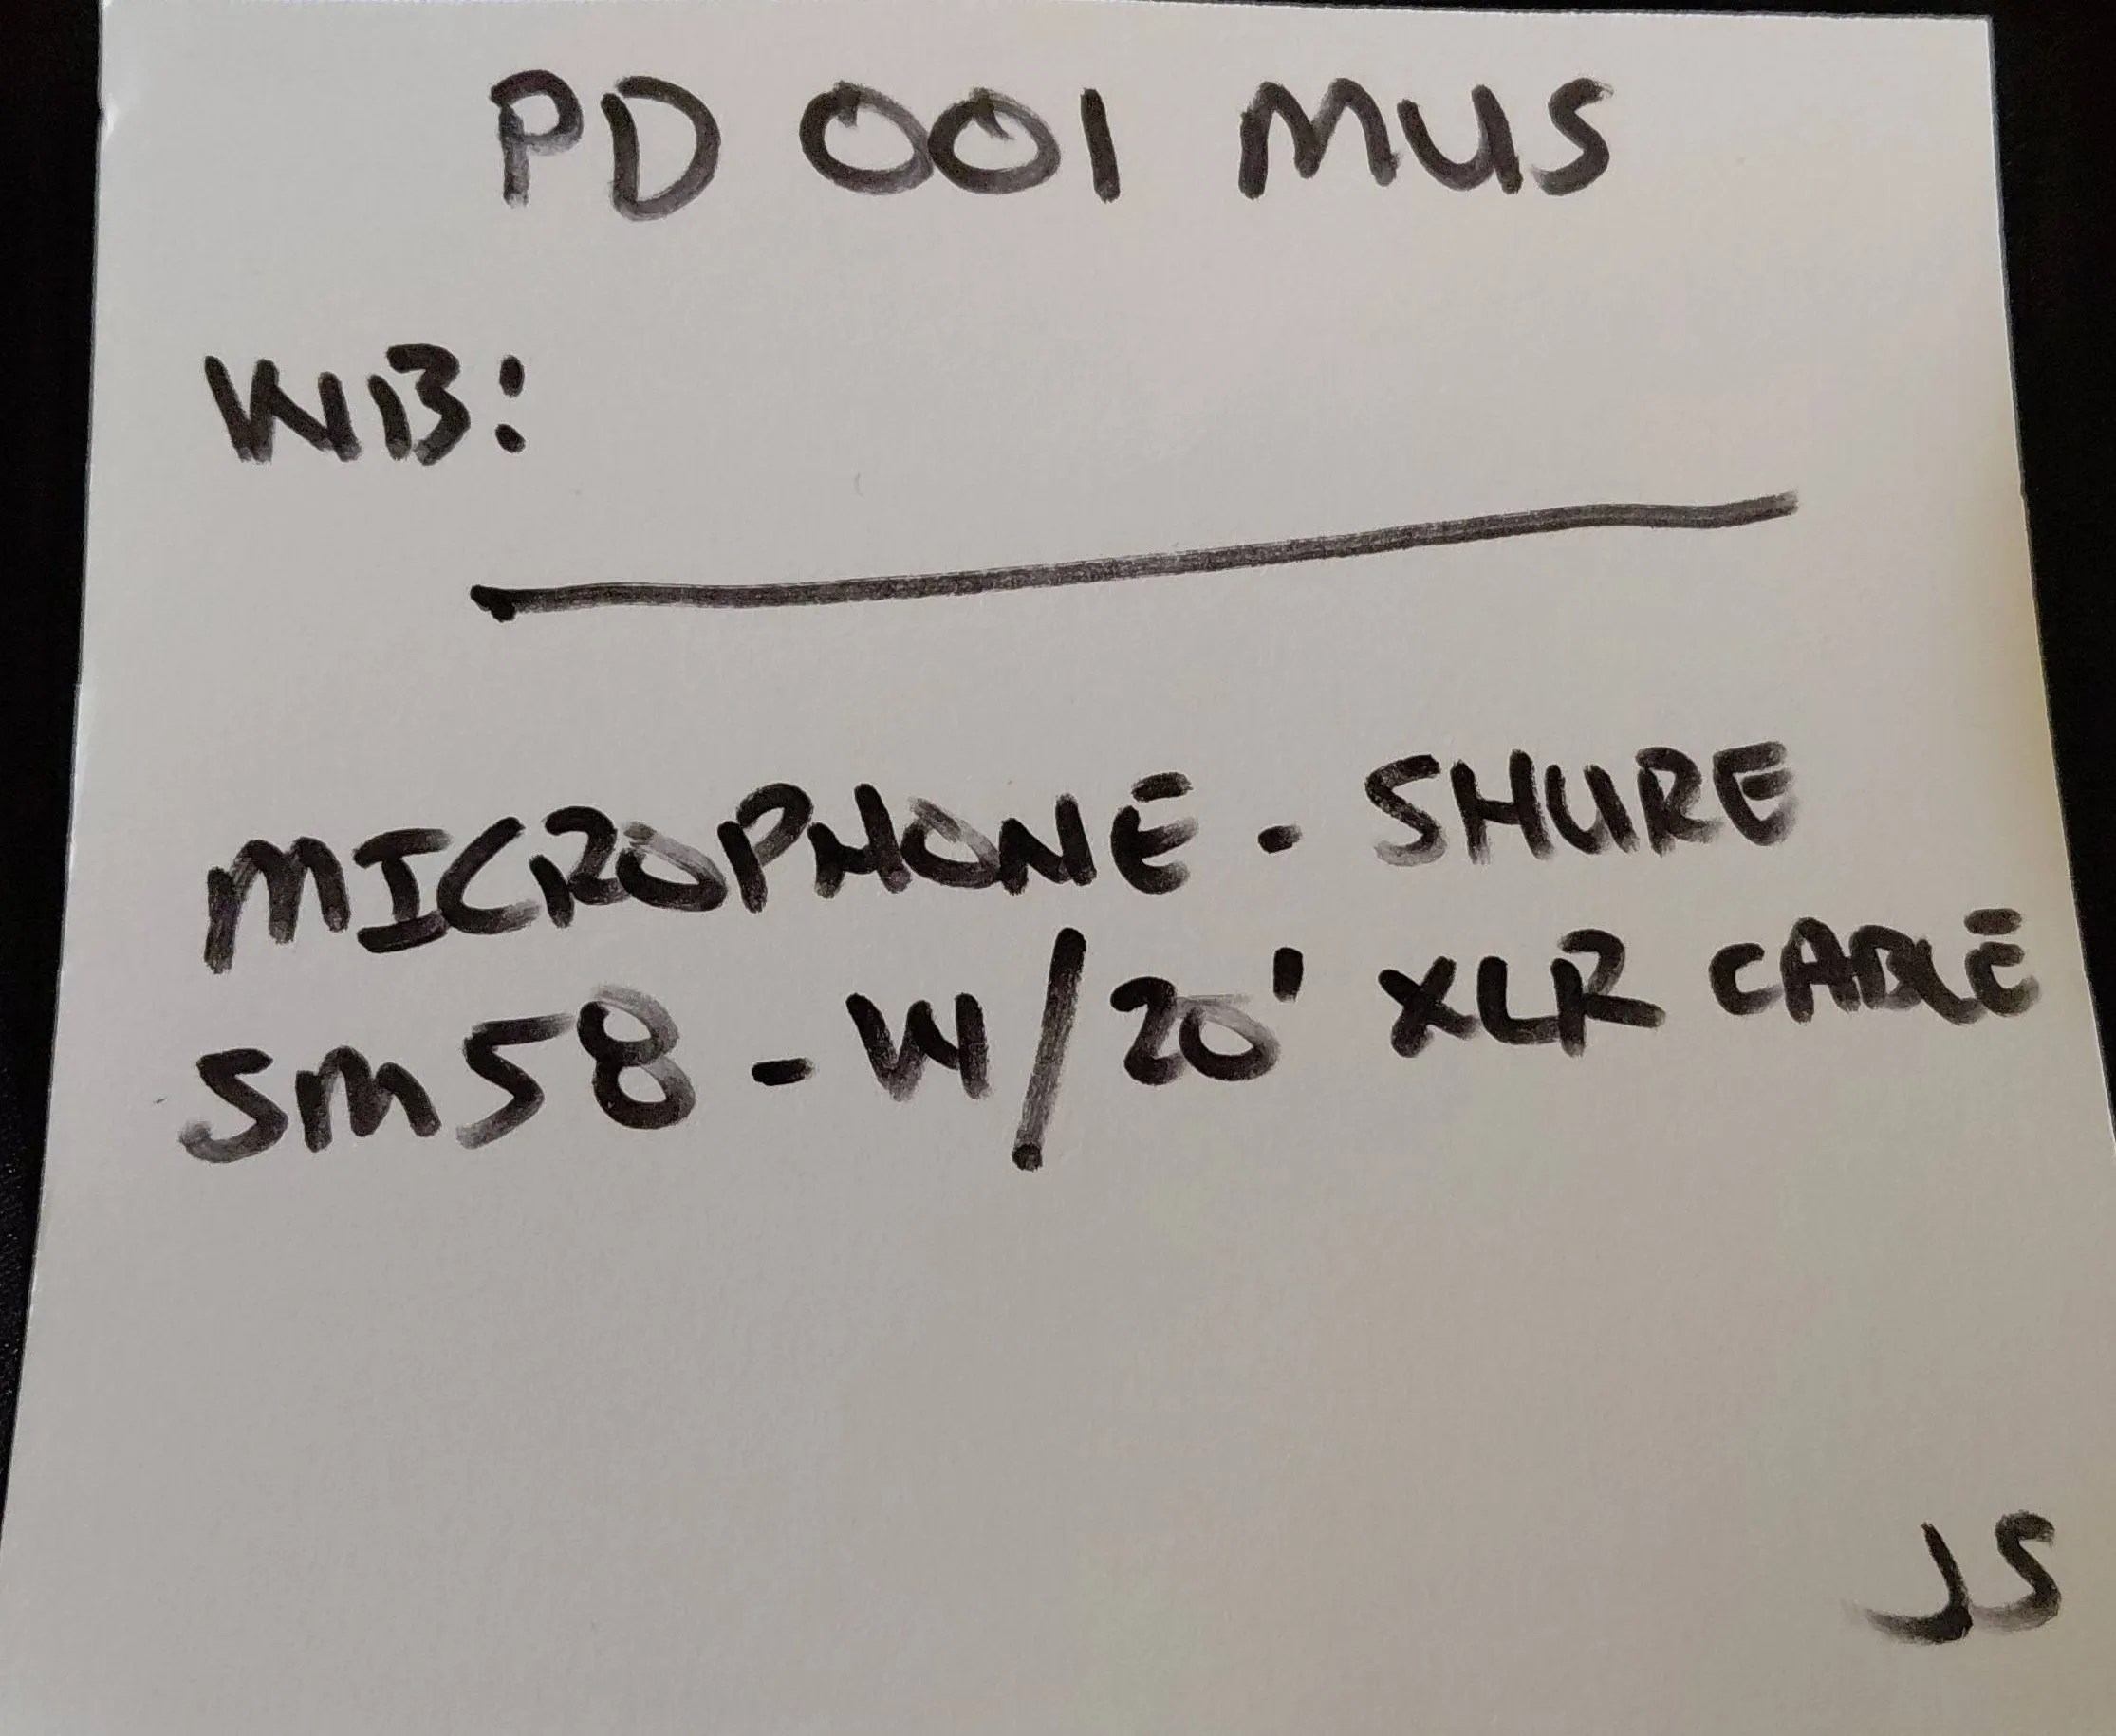 PD 001 MUS
WB:
MICROPHONE - SHURE
SM58 - W/20' XLR CABLE
JS